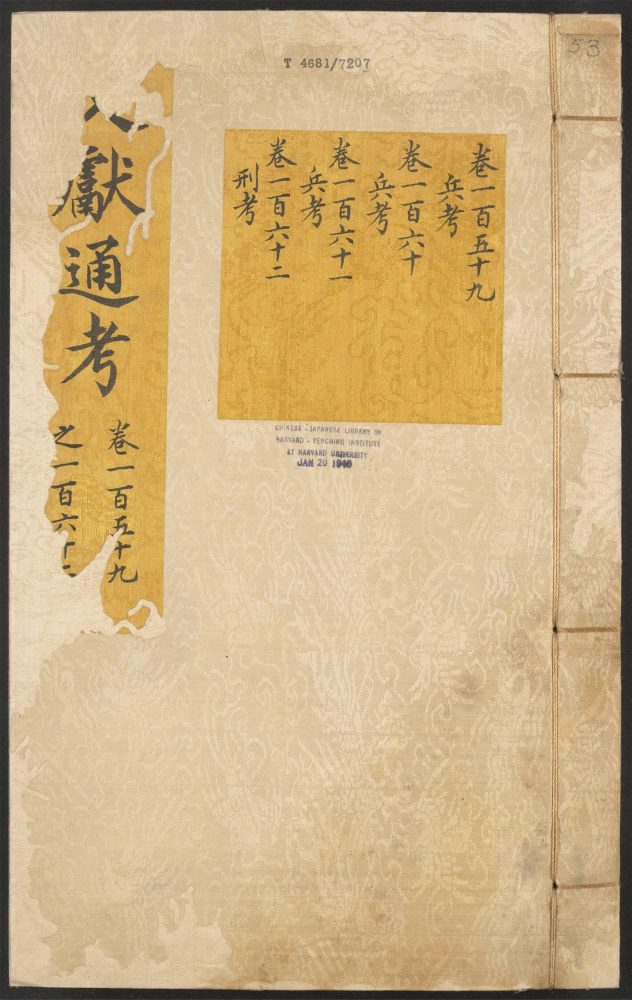 T 4681/7207
53
卷一百五十九
兵考
卷一百六十
兵考
卷一百六十一
兵考
卷一百六十二
刑考
獻通考
卷一百五十九
之一百六十二
CHINESE - JAPANESE LIBRARY OF
HARVARD - YENCHING INSTITUTE
AT HARVARD UNIVERSITY
JAN 20 1940